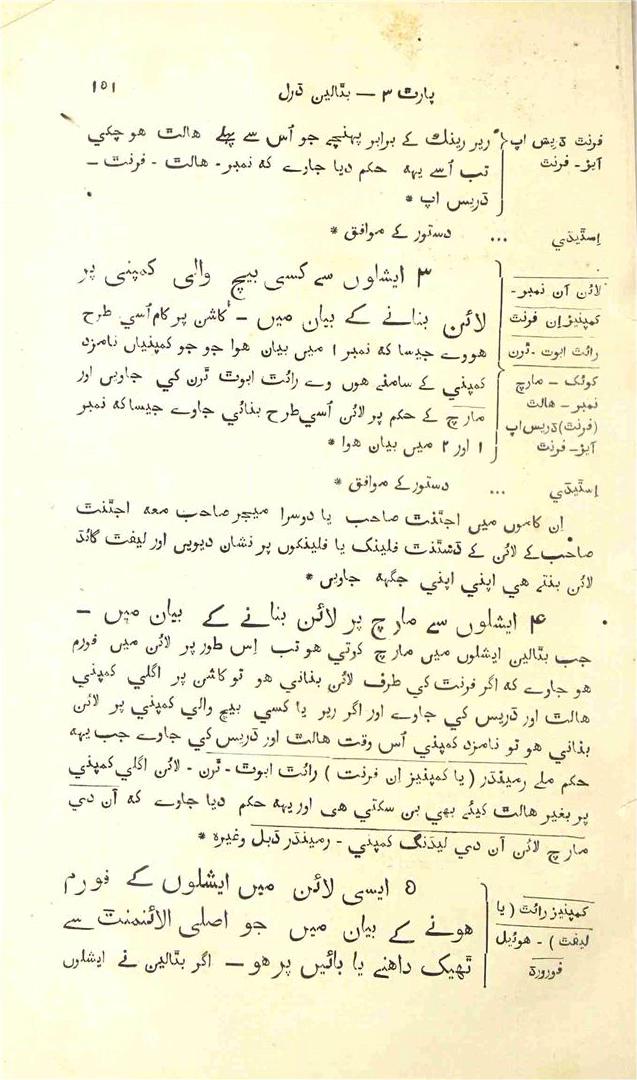 پارٹ ۳ — بٹالین ڈرل
۱۵۱
فرنٹ ڈریس اپ
آیز- فرنٹ
ریر رینک کے برابر پہنچے جو اُس سے پہلے ھالٹ ھو چکي
تب اُسے یہہ حکم دیا جاوے کہ نمبر - ھالٹ - فرنٹ —
ڈریس اپ *
اِسٹیڈي ... دستور کے موافق *
لائن آن نمبر-
کمپنیز اِن فرنٹ
رائٹ ابوٹ - ٹرن
کوئک — مارچ
نمبر — ھالٹ
(فرنٹ) ڈریس اپ
آیز- فرنٹ
۳ ایشلوں سے کسي بیچ والي کمپني پر
لائن بنانے کے بیان میں — کاشن پر کام اُسي طرح
ھووے جیسا کہ نمبر ۱ میں بیان ھوا جو جو کمپنیاں نامزد
کمپني کے سامنے ھوں وے رائٹ ابوٹ ٹرن کي جاویں اور
مارچ کے حکم پر لائن اُسي طرح بنائي جاوے جیسا کہ نمبر
۱ اور ۲ میں بیان ھوا *
اِسٹیڈي ... دستور کے موافق *
اِن کاموں میں اجٹنٹ صاحب یا دوسرا میجر صاحب معہ اجٹنٹ
صاحب کے لائن کے ڈسٹنٹ فلینک یا فلینکوں پر نشان دیویں اور لیفٹ گائڈ
لائن بنتے ھي اپني اپني جگہہ جاویں *
۴ ایشلوں سے مارچ پر لائن بنانے کے بیان میں —
جب بٹالین ایشلوں میں مارچ کرتي ھو تب اِس طور پر لائن میں فورم
ھو جاوے کہ اگر فرنٹ کي طرف لائن بناني ھو تو کاشن پر اگلي کمپني
ھالٹ اور ڈریس کي جاوے اور اگر ریر یا کسي بیچ والي کمپني پر لائن
بناني ھو تو نامزد کمپني اُس وقت ھالٹ اور ڈریس کي جاوے جب یہہ
حکم ملے رمینڈر (یا کمپنیز اِن فرنٹ) رائٹ ابوٹ - ٹرن - لائن اگلي کمپني
پر بغیر ھالٹ کیئے بھي بن سکتي ھی اور یہہ حکم دیا جاوے کہ آن دي
مارچ لائن آن دي لیڈنگ کمپني - رمینڈر ڈبل وغیرہ *
کمپنیز رائٹ (یا
لیفٹ) - ھوئیل
فورورڈ
۵ ایسي لائن میں ایشلوں کے فورم
ھونے کے بیان میں جو اصلي الائنمنٹ سے
ٹھیک داھنے یا بائیں پر ھو — اگر بٹالین نے ایشلوں